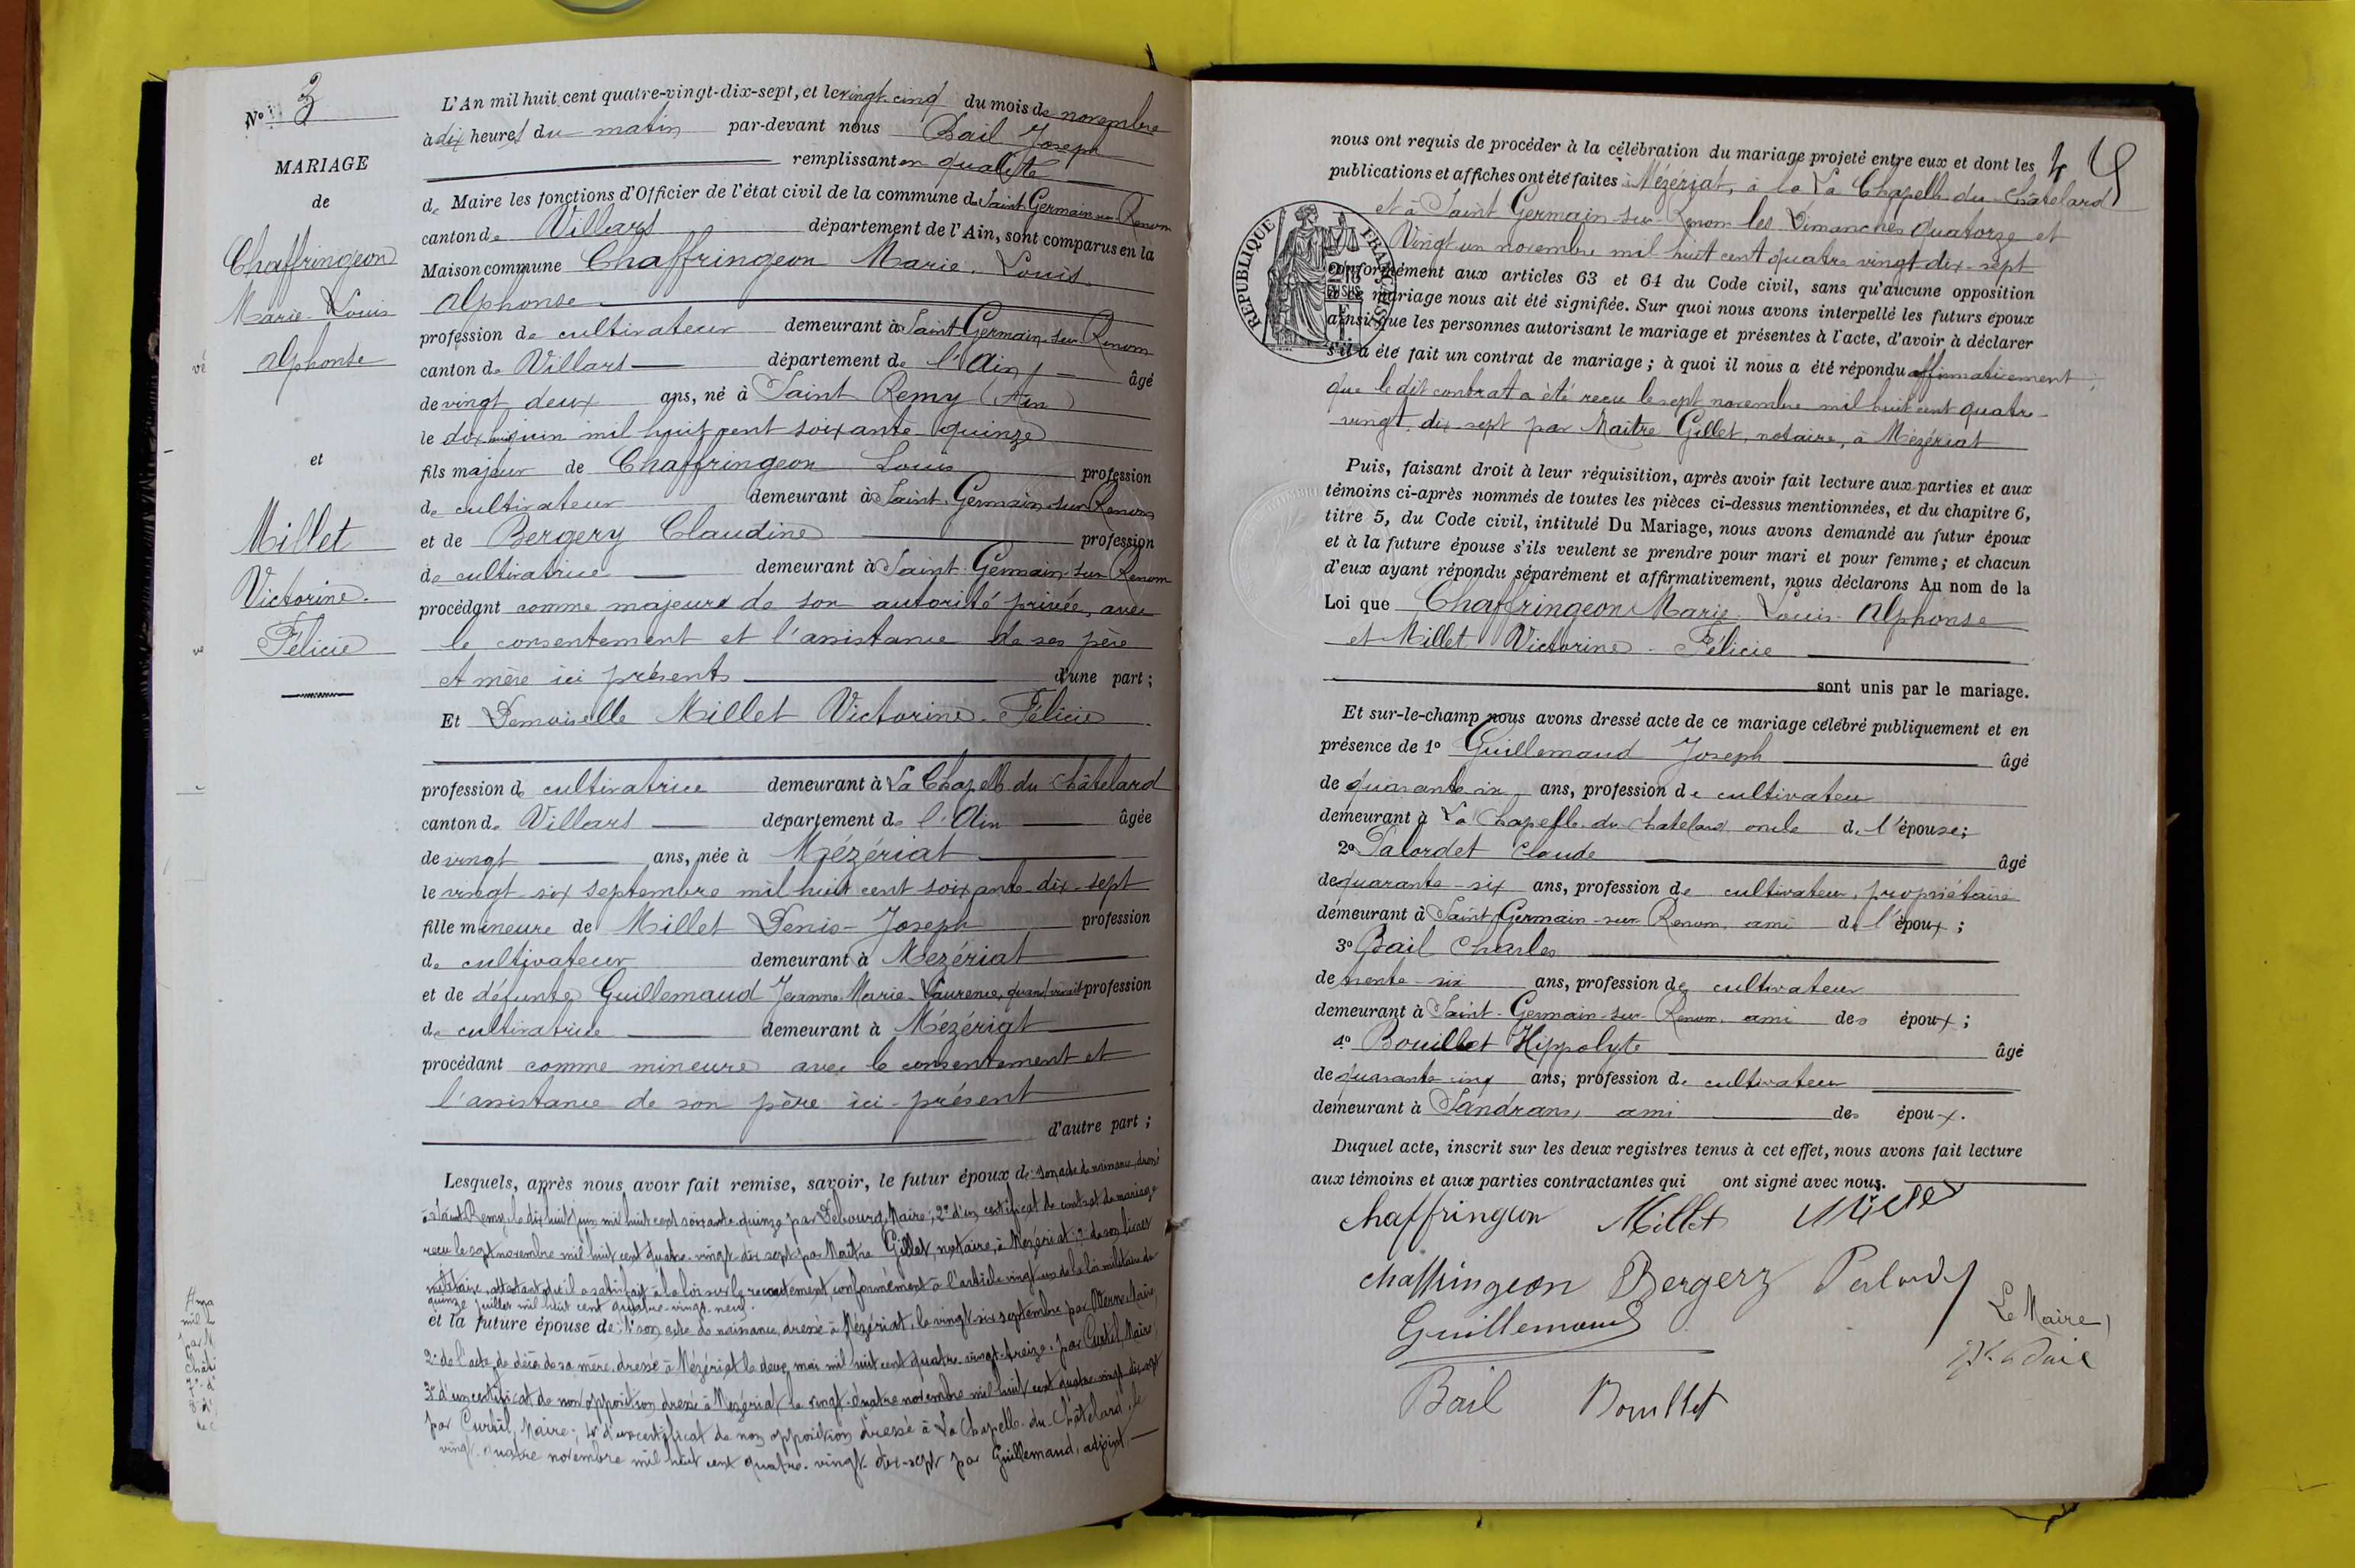 N° 3
MARIAGE
de
Chaffringeon
Marie-Louis
Alphonse
et
Millet
Victorine-
Félicie
L'An mil huit cent quatre-vingt-dix-sept, et le vingt-cinq du mois de novembre
à dix heures du matin par-devant nous Bail Joseph
remplissant en qualité
de Maire les fonctions d'Officier de l'état civil de la commune de Saint Germain sur Renom
canton de Villars département de l'Ain, sont comparus en la
Maison commune Chaffringeon Marie-Louis
Alphonse
profession de cultivateur demeurant à Saint Germain-sur-Renom
canton de Villars département de l'Ain âgé
de vingt deux ans, né à Saint Remy (Ain)
le dix huit juin mil huit cent soixante-quinze
fils majeur de Chaffringeon Louis profession
de cultivateur demeurant à Saint-Germain-sur-Renom
et de Bergery Claudine profession
de cultivatrice demeurant à Saint-Germain-sur-Renom
procédant comme majeur de son autorité privée, avec
le consentement et l'assistance de ses père
et mère ici présents d'une part;
Et Demoiselle Millet Victorine-Félicie
profession de cultivatrice demeurant à La Chapelle du Châtelard
canton de Villars département de l'Ain âgée
de vingt ans, née à Mézériat
le vingt-six septembre mil huit cent soixante-dix-sept
fille mineure de Millet Denis-Joseph profession
de cultivateur demeurant à Mezériat
et de défunte Guillemaud Jeanne-Marie-Laurence, quand vivait profession
de cultivatrice demeurant à Mézériat
procédant comme mineure avec le consentement et
l'assistance de son père ici-présent
d'autre part;
Lesquels, après nous avoir fait remise, savoir, le futur époux de: son acte de naissance, dressé
à Saint Remy, le dix huit juin mil huit cent soixante-quinze par Debourg, Maire; 2° d'un certificat de contrat de mariage
reçu le sept novembre mil huit cent quatre-vingt-dix sept par Maître Gillet, notaire, à Mézériat; 3° de son livret
militaire, attestant qu'il a satisfait à la loi sur le recrutement, conformément à l'article vingt-un de la loi militaire du
quinze juillet mil huit cent quatre-vingt-neuf.
et la future épouse de: 1° son acte de naissance, dressé à Mézériat, le vingt-six septembre par Verne, Maire,
2° de l'acte de décès de sa mère, dressé à Mézériat le deux mai mil huit cent quatre-vingt-treize, par Curtil, Maire;
3° d'un certificat de non opposition dressé à Mézériat le vingt-quatre novembre mil huit cent quatre-vingt-dix-sept
par Curtil, Maire; 4° d'un certificat de non opposition dressé à La Chapelle-du-Châtelard, le
vingt-quatre novembre mil huit cent quatre-vingt-dix-sept par Guillemaud, adjoint
nous ont requis de procéder à la célébration du mariage projeté entre eux et dont les 4
publications et affiches ont été faites à Mézériat, à la La Chapelle-du-Châtelard
et à Saint Germain-sur-Renom les Dimanches quatorze et
Vingt un novembre mil huit cent quatre vingt-dix-sept
RÉPUBLIQUE FRANÇAISE
conformément aux articles 63 et 64 du Code civil, sans qu'aucune opposition
à ce mariage nous ait été signifiée. Sur quoi nous avons interpellé les futurs époux
ainsi que les personnes autorisant le mariage et présentes à l'acte, d'avoir à déclarer
s'il a été fait un contrat de mariage; à quoi il nous a été répondu affirmativement;
que le dit contrat a été reçu le sept novembre mil huit cent quatre-
vingt-dix-sept par Maître Gillet, notaire, à Mézériat
Puis, faisant droit à leur réquisition, après avoir fait lecture aux parties et aux
témoins ci-après nommés de toutes les pièces ci-dessus mentionnées, et du chapitre 6,
titre 5, du Code civil, intitulé Du Mariage, nous avons demandé au futur époux
et à la future épouse s'ils veulent se prendre pour mari et pour femme; et chacun
d'eux ayant répondu séparément et affirmativement, nous déclarons Au nom de la
Loi que Chaffringeon Marie-Louis-Alphonse
et Millet Victorine-Félicie
sont unis par le mariage.
Et sur-le-champ nous avons dressé acte de ce mariage célébré publiquement et en
présence de 1° Guillemaud Joseph âgé
de quarante six ans, profession de cultivateur
demeurant à La Chapelle-du-Chatelard oncle de l'épouse;
2° Palordet Claude âgé
de quarante-six ans, profession de cultivateur, propriétaire
demeurant à Saint Germain-sur-Renom, ami de l'époux;
3° Bail Charles
de trente-six ans, profession de cultivateur
demeurant à Saint-Germain-sur-Renom, ami des époux;
4° Bouillet Hippolyte âgé
de quarante-cinq ans, profession de cultivateur
demeurant à Sandrans, ami des époux.
Duquel acte, inscrit sur les deux registres tenus à cet effet, nous avons fait lecture
aux témoins et aux parties contractantes qui ont signé avec nous.
Chaffringeon Millet Millet
Chaffringeon Bergery Palordet
Guillemaud Le Maire
Bail Bouillet